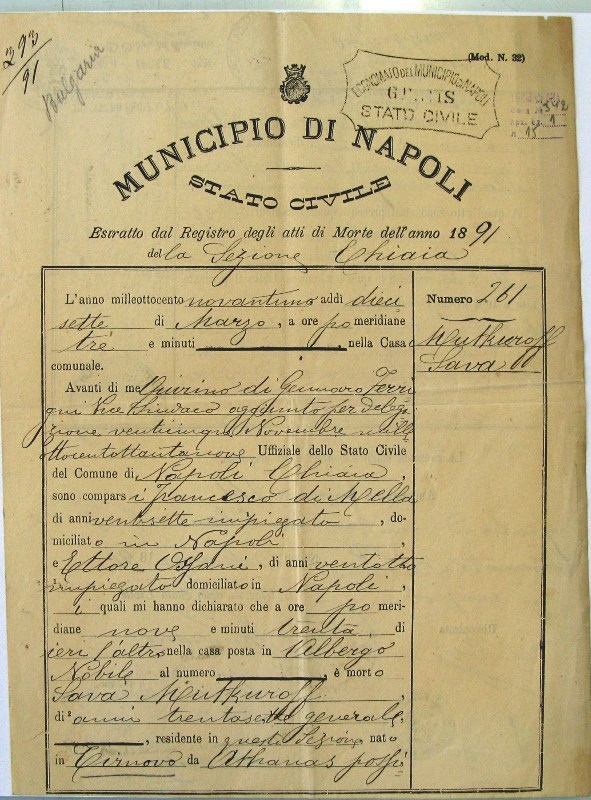 293
91
Bulgaria
(Mod. N. 32)
ECONOMATO DEL MUNICIPIO DI NAPOLI
GRATIS
STATO CIVILE
1
15
MUNICIPIO DI NAPOLI
STATO CIVILE
Estratto dal Registro degli atti di Morte dell'anno 1891
della Sezione Chiaia
L'anno milleottocento novantuno addì dieci
sette di Marzo, a ore po meridiane
tre e minuti , nella Casa
comunale.
Avanti di me Quirino di Gennaro Ferri
qui Vice Sindaco aggiunto per delega
zione venticinque Novembre mille
ottocentottantanove Uffiziale dello Stato Civile
del Comune di Napoli Chiaia
sono comparsi Francesco di Mella
di anni ventisette impiegato, do-
miciliato in Napoli,
e Ettore, di anni ventotto
impiegato domiciliato in Napoli,
i quali mi hanno dichiarato che a ore po meri-
diane nove e minuti trenta, di
ieri l'altro nella casa posta in Albergo
Nobile al numero , è morto
Sava Mutkuroff,
di anni trentasette generale,
, residente in questa Sezione nato
in Tirnovo da Athanas possi
Numero 261
Mutkuroff
Sava